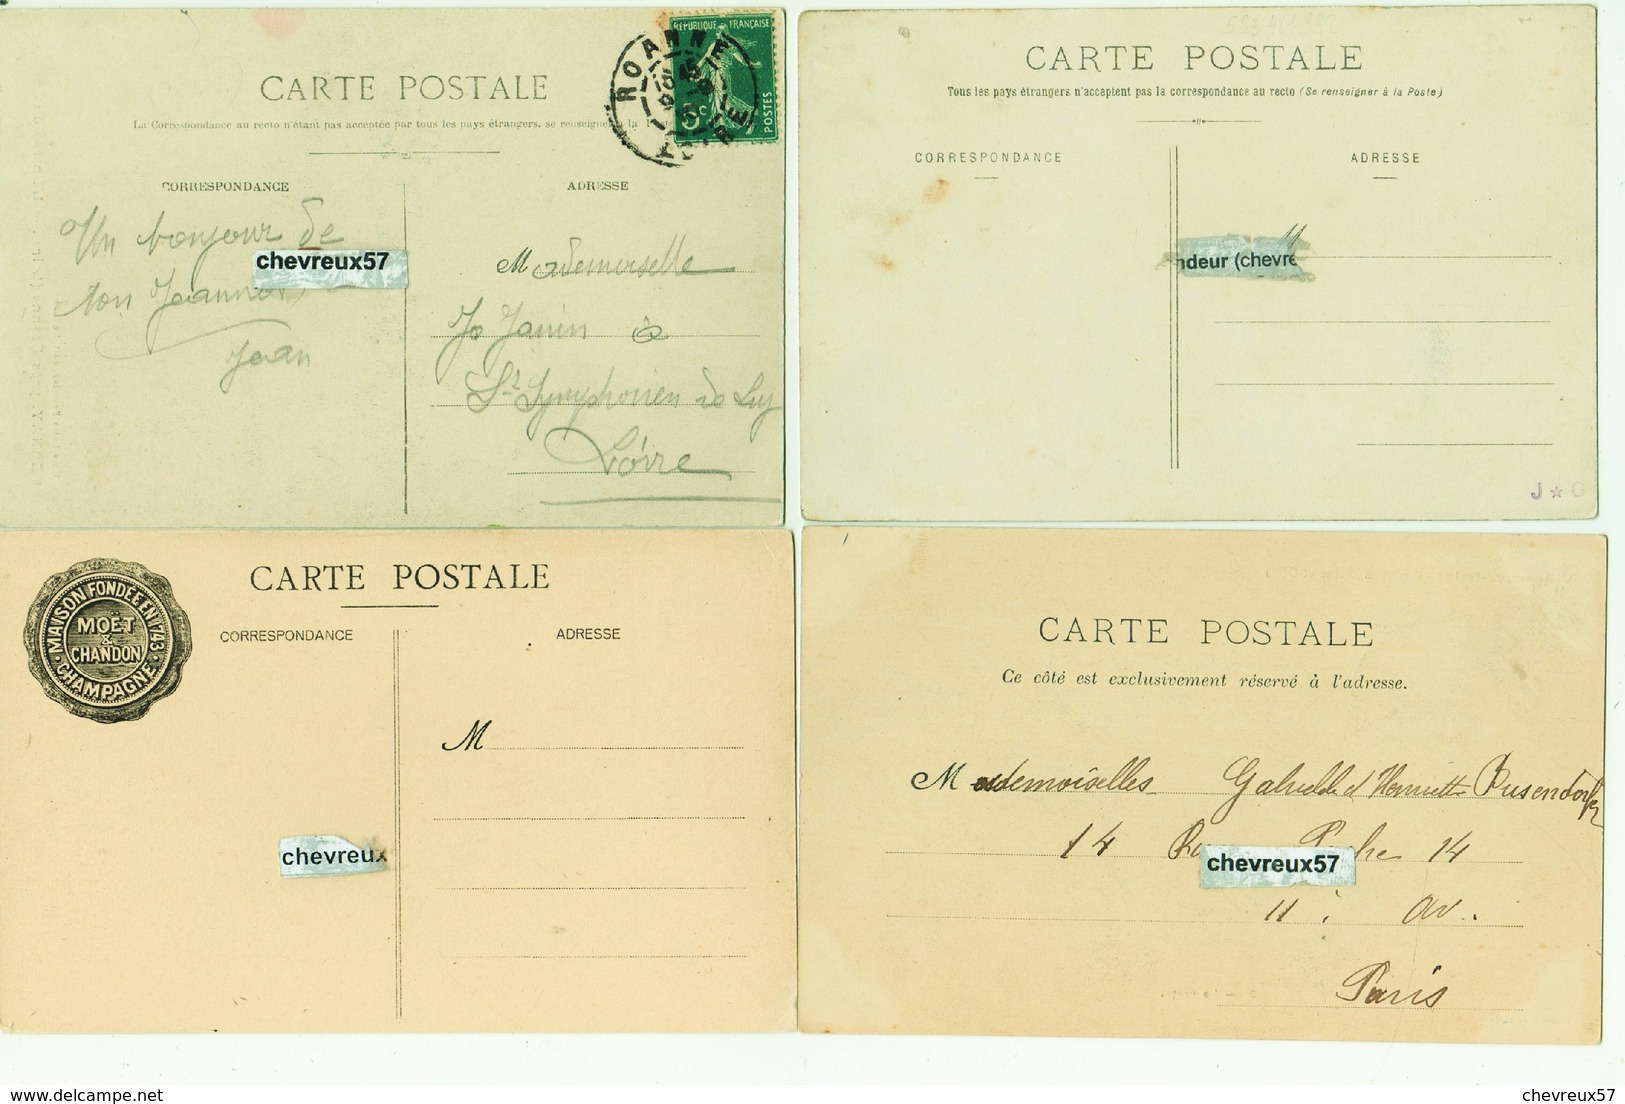 CARTE POSTALE
La Correspondance au recto n'étant pas acceptée par tous les pays étrangers, se renseigner à la
CORRESPONDANCE
ADRESSE
RÉPUBLIQUE FRANÇAISE
5c
POSTES
ROANNE
Un bonjour de
ton Jeannot
Jean
chevreux57
Mademoiselle
Jo Janin à
St Symphorien de Lay
Loire
CARTE POSTALE
Tous les pays étrangers n'acceptent pas la correspondance au recto (Se renseigner à la Poste)
CORRESPONDANCE
ADRESSE
M
ndeur (chevre
J ☆ G
MAISON FONDÉE EN 1743
MOËT
&
CHANDON
CHAMPAGNE
CARTE POSTALE
CORRESPONDANCE
ADRESSE
M
chevreux
CARTE POSTALE
Ce côté est exclusivement réservé à l'adresse.
Mademoiselles Gabrielle et Henriette
14 14
chevreux57
11 : av.
Paris
chevreux57